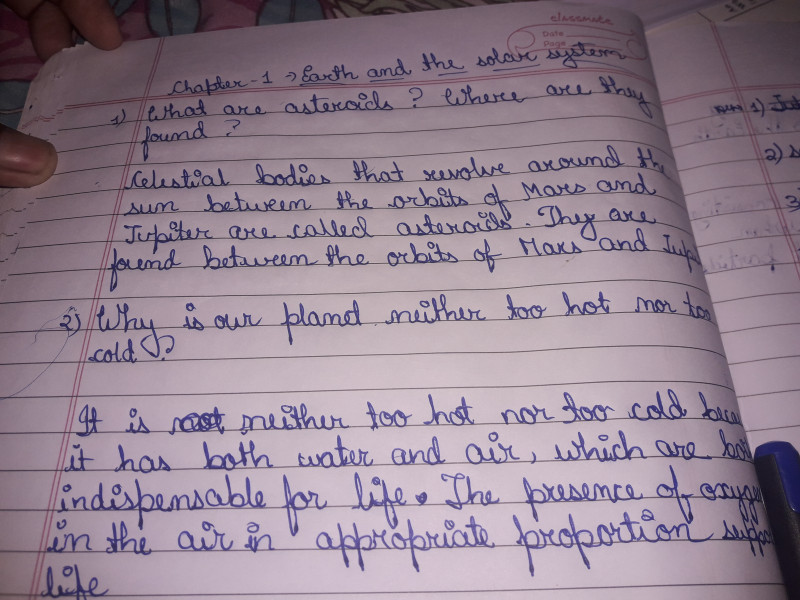 classmate
Date
Page
Chapter-1 → Earth and the solar system
1) What are asteroids? Where are they
found?
Celestial bodies that revolve around the
sun between the orbits of Mars and
Jupiter are called asteroids. They are
found between the orbits of Mars and Jup
2) Why is our pland neither too hot nor too
cold?
It is neither too hot nor too cold beca
it has both water and air, which are bot
indispensable for life. The presence of oxyge
in the air in appropriate proportion suppo
life
1)
2)
3)